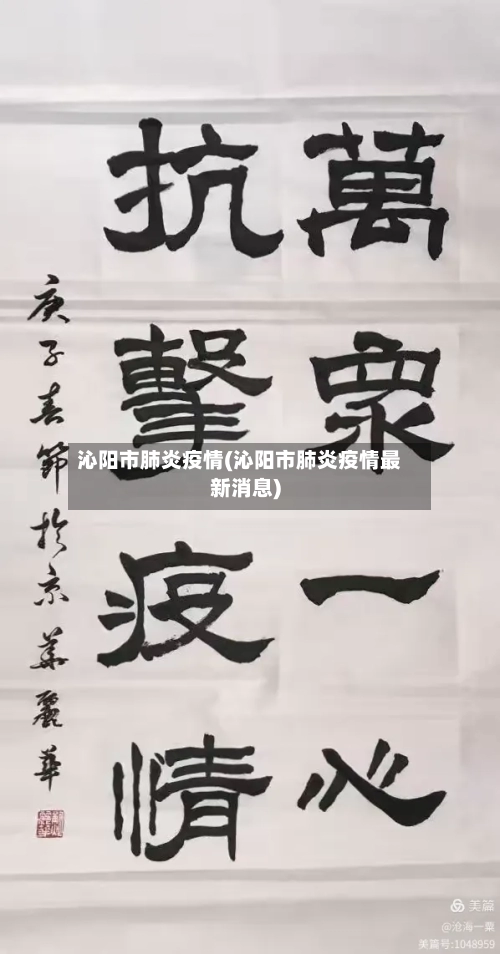 萬眾一心
抗擊疫情
庚子春節於京華麗華
沁阳市肺炎疫情(沁阳市肺炎疫情最
新消息)
美篇
@沧海一粟
美篇号:1048959